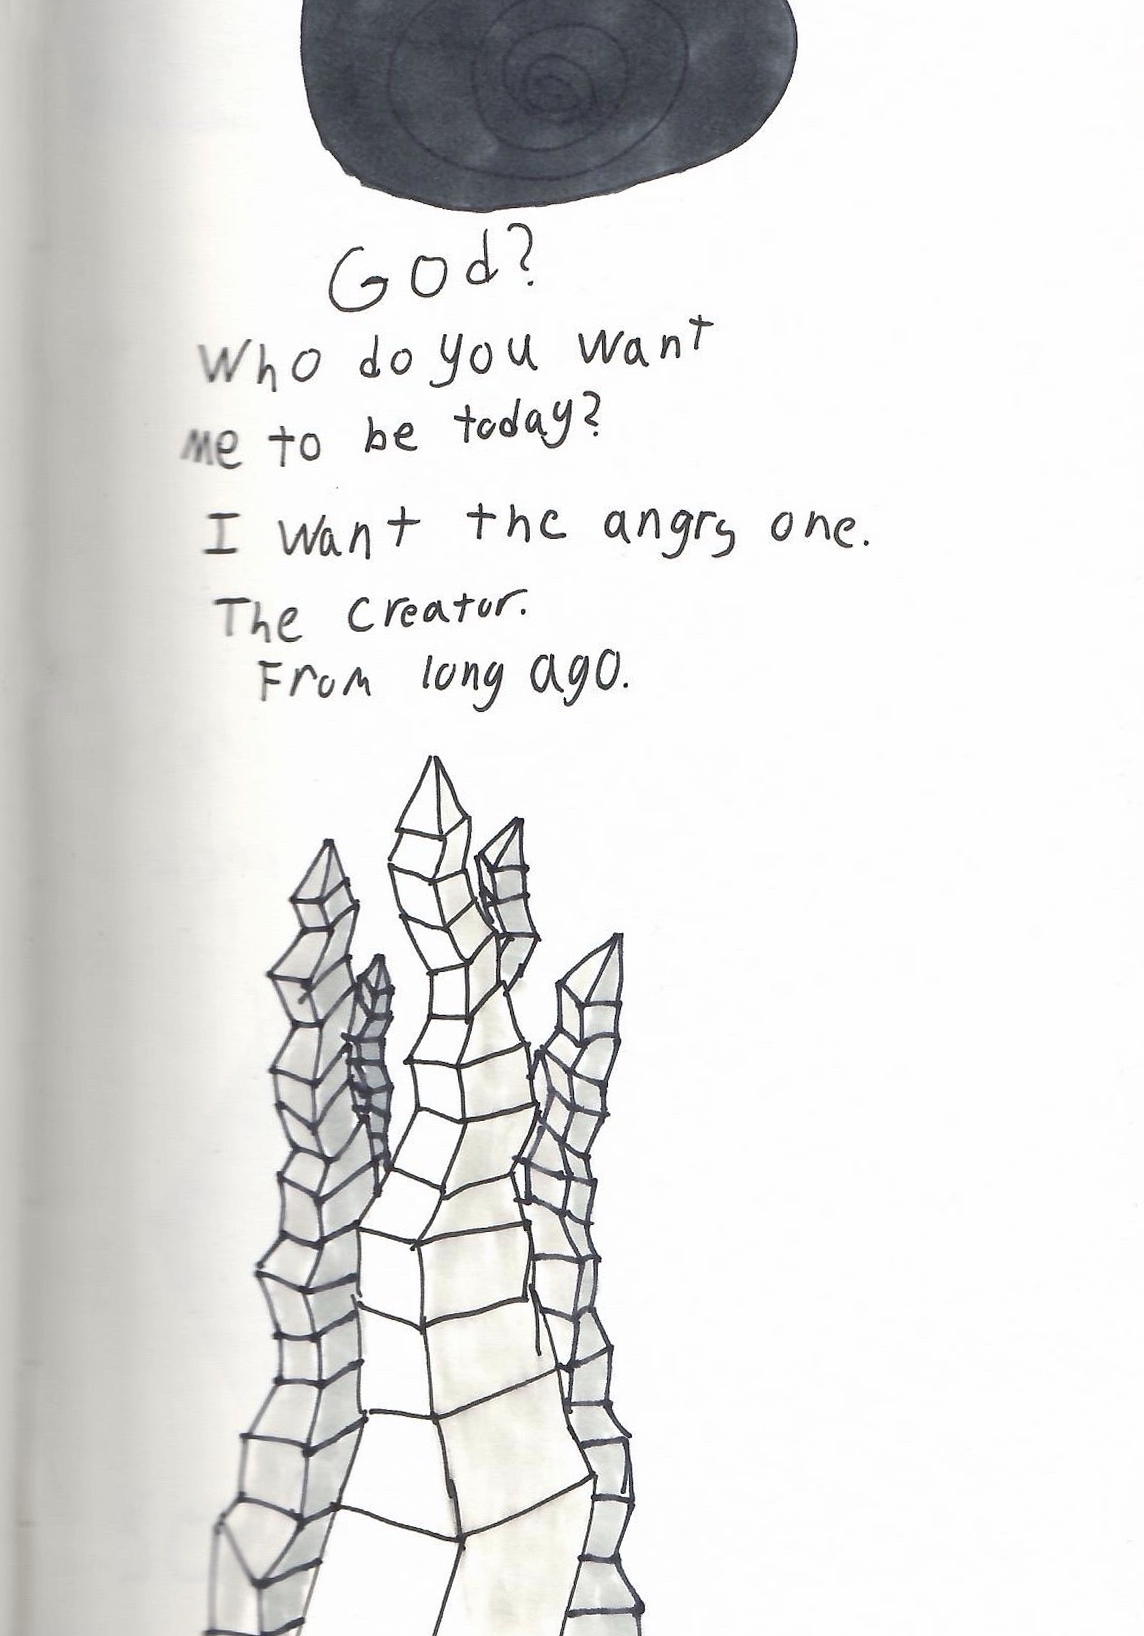 God?
Who do you want
me to be today?
I want the angry one.
The Creator.
From long ago.